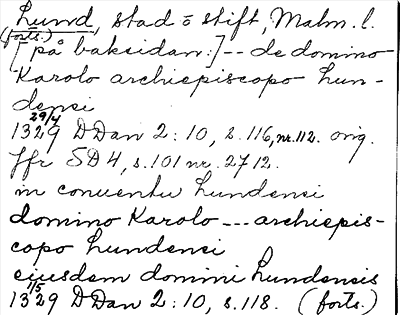 Lund, stad o stift, Malm. l.
(forts.)
[på baksidan:] -- de domino
Karolo archiepiscopo Lun-
densi
29/4
1329 DDan 2:10, s.116, nr.112. orig.
Jfr SD4, s.101 nr. 2712.
in conuentu Lundensi
domino Karolo --- archiepis-
copo Lundensi
eiusdem domini Lundensis
1/5
1329 DDan 2:10, s.118. (forts.)